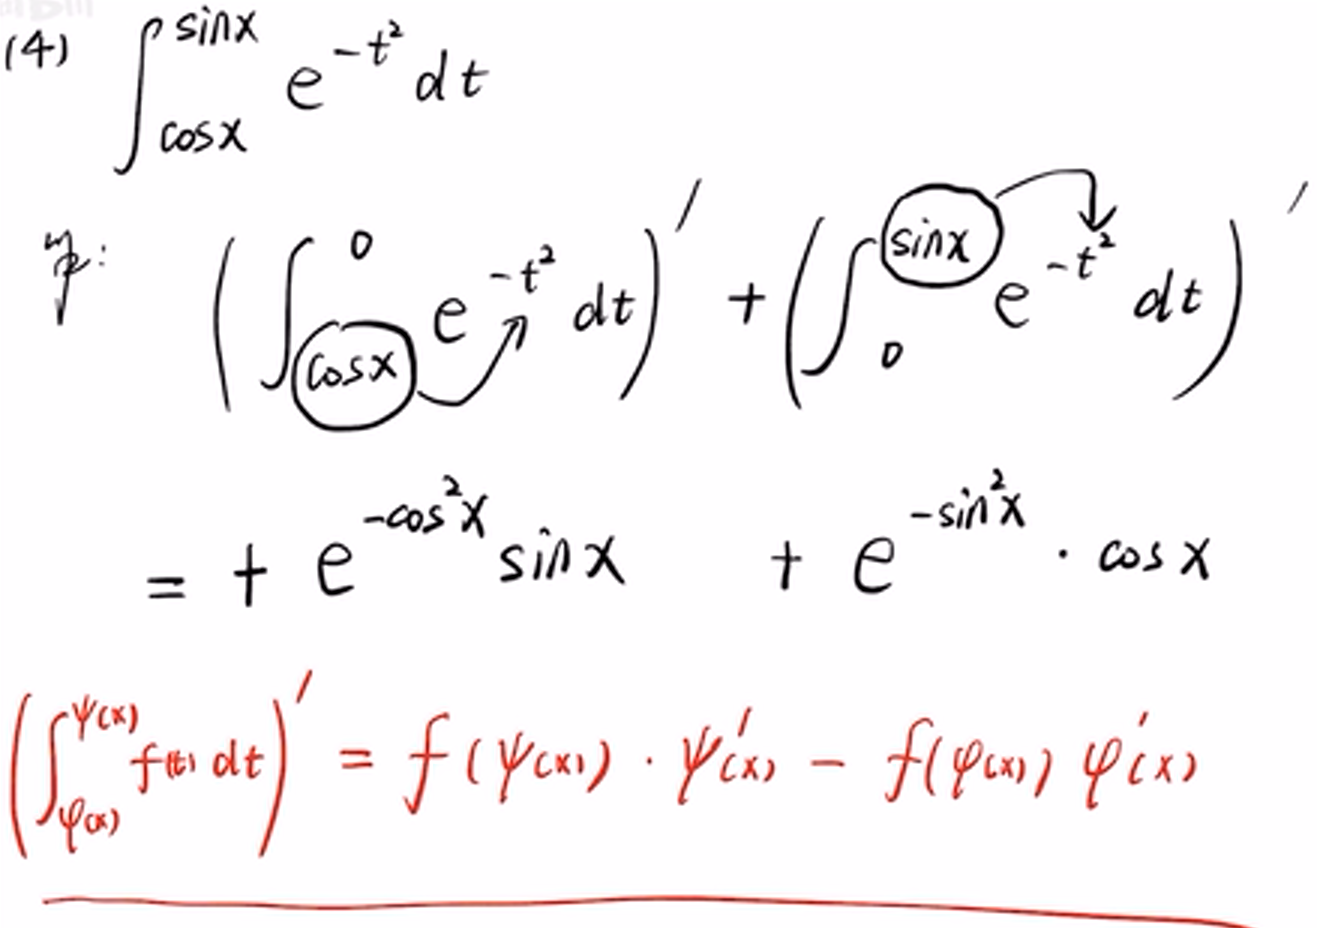 (4) ∫_{cosx}^{sinx} e^{-t²} dt
(∫_{cosx}^{0} e^{-t²} dt)′ + (∫_{0}^{sinx} e^{-t²} dt)′
= + e^{-cos²x} sinx + e^{-sin²x} · cosx
(∫_{φ(x)}^{ψ(x)} f(t) dt)′ = f(ψ(x)) · ψ′(x) - f(φ(x)) φ′(x)